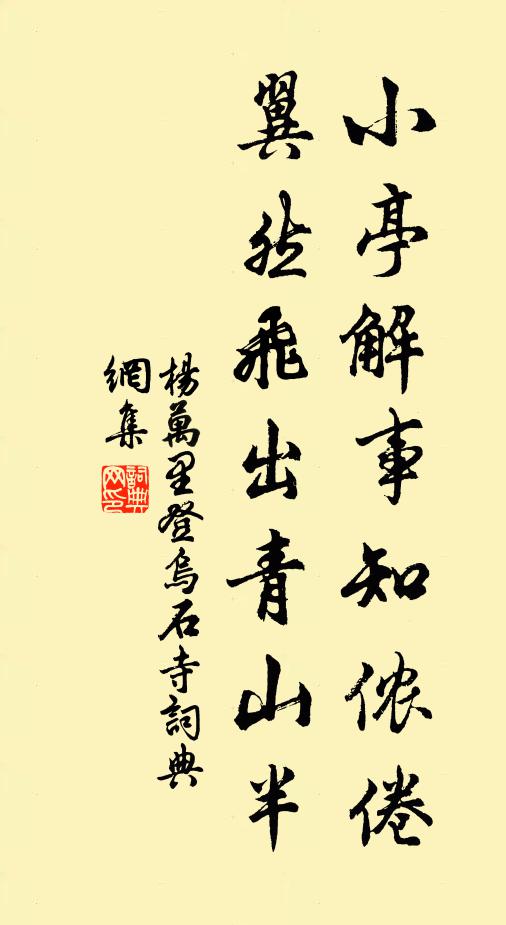 小亭解事知侬倦
翼然飛出青山半
楊萬里登烏石寺詞典
網集
詞典
网印